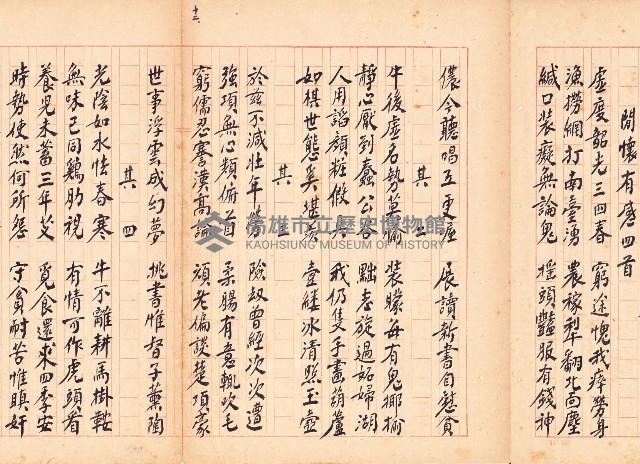 間懷有唐四首
虛度韶光三四春　窮途愧我瘁勞身
漁撈網打南臺湧　農稼犁翻北向塵
緘口裝癡無論鬼　搖頭豔服有錢神
儂今聽唱五更　展讀新書自慰貧
其
牛後虛名勢莫　裝朦每有鬼揶揄
靜心厭到蠢公　黜志旋過妬婦湖
人用謟顏粧假　我仍隻手畫葫蘆
如棋世態奚堪　壹縷冰清照玉壺
其
於茲不減壯年勞　險劫曾經次次遭
強項無心類俯首　柔腸有意輒吹毛
窮儒忍謇漢高論　頑老偏談楚項豪
世事浮雲成幻夢　挑書惟督子薰陶
其四
光陰如水怯春寒　牛不離耕馬掛鞍
無味已同鷄肋視　有情可作虎頭看
養兒未蓄三年艾　覓食還求四季安
時勢使然何所怨　守貧耐苦惟瞋奸
高雄市立歷史博物館
KAOHSIUNG MUSEUM OF HISTORY